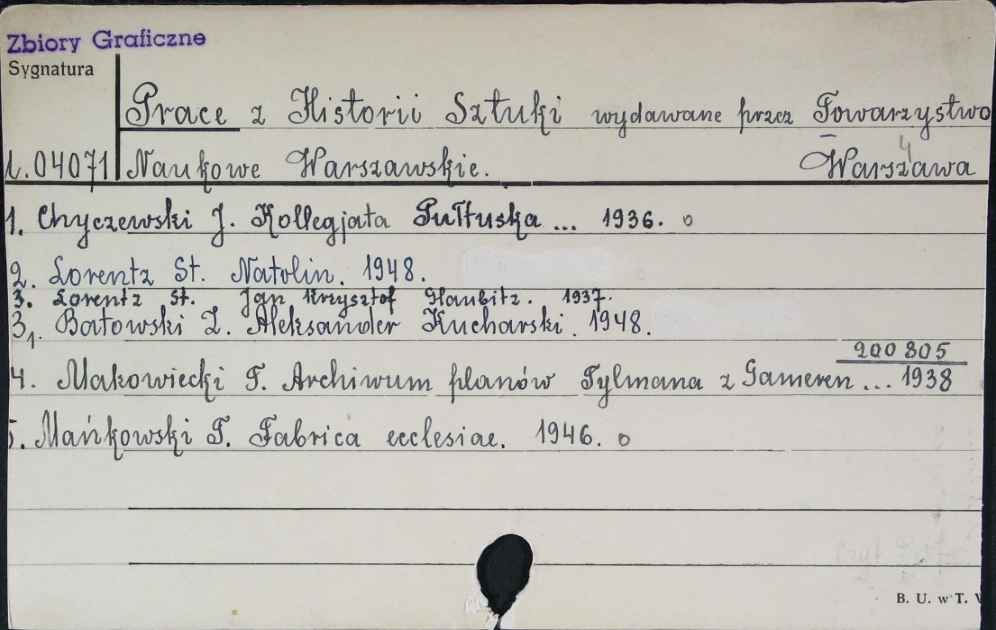 Zbiory Graficzne
Sygnatura
Prace z Historii Sztuki wydawane przez Towarzystwo
ł.04071 Naukowe Warszawskie. Warszawa
1. Chyczewski J. Kollegjata Pułtuska ... 1936. o
2. Lorentz St. Natolin. 1948.
3. Lorentz St. Jan Krzysztof Glaubitz. 1937.
3₁. Batowski Z. Aleksander Kucharski. 1948.
200 805
4. Makowiecki T. Archiwum planów Tylmana z Gameren ... 1938
5. Mańkowski T. Fabrica ecclesiae. 1946. o
B. U. w T.